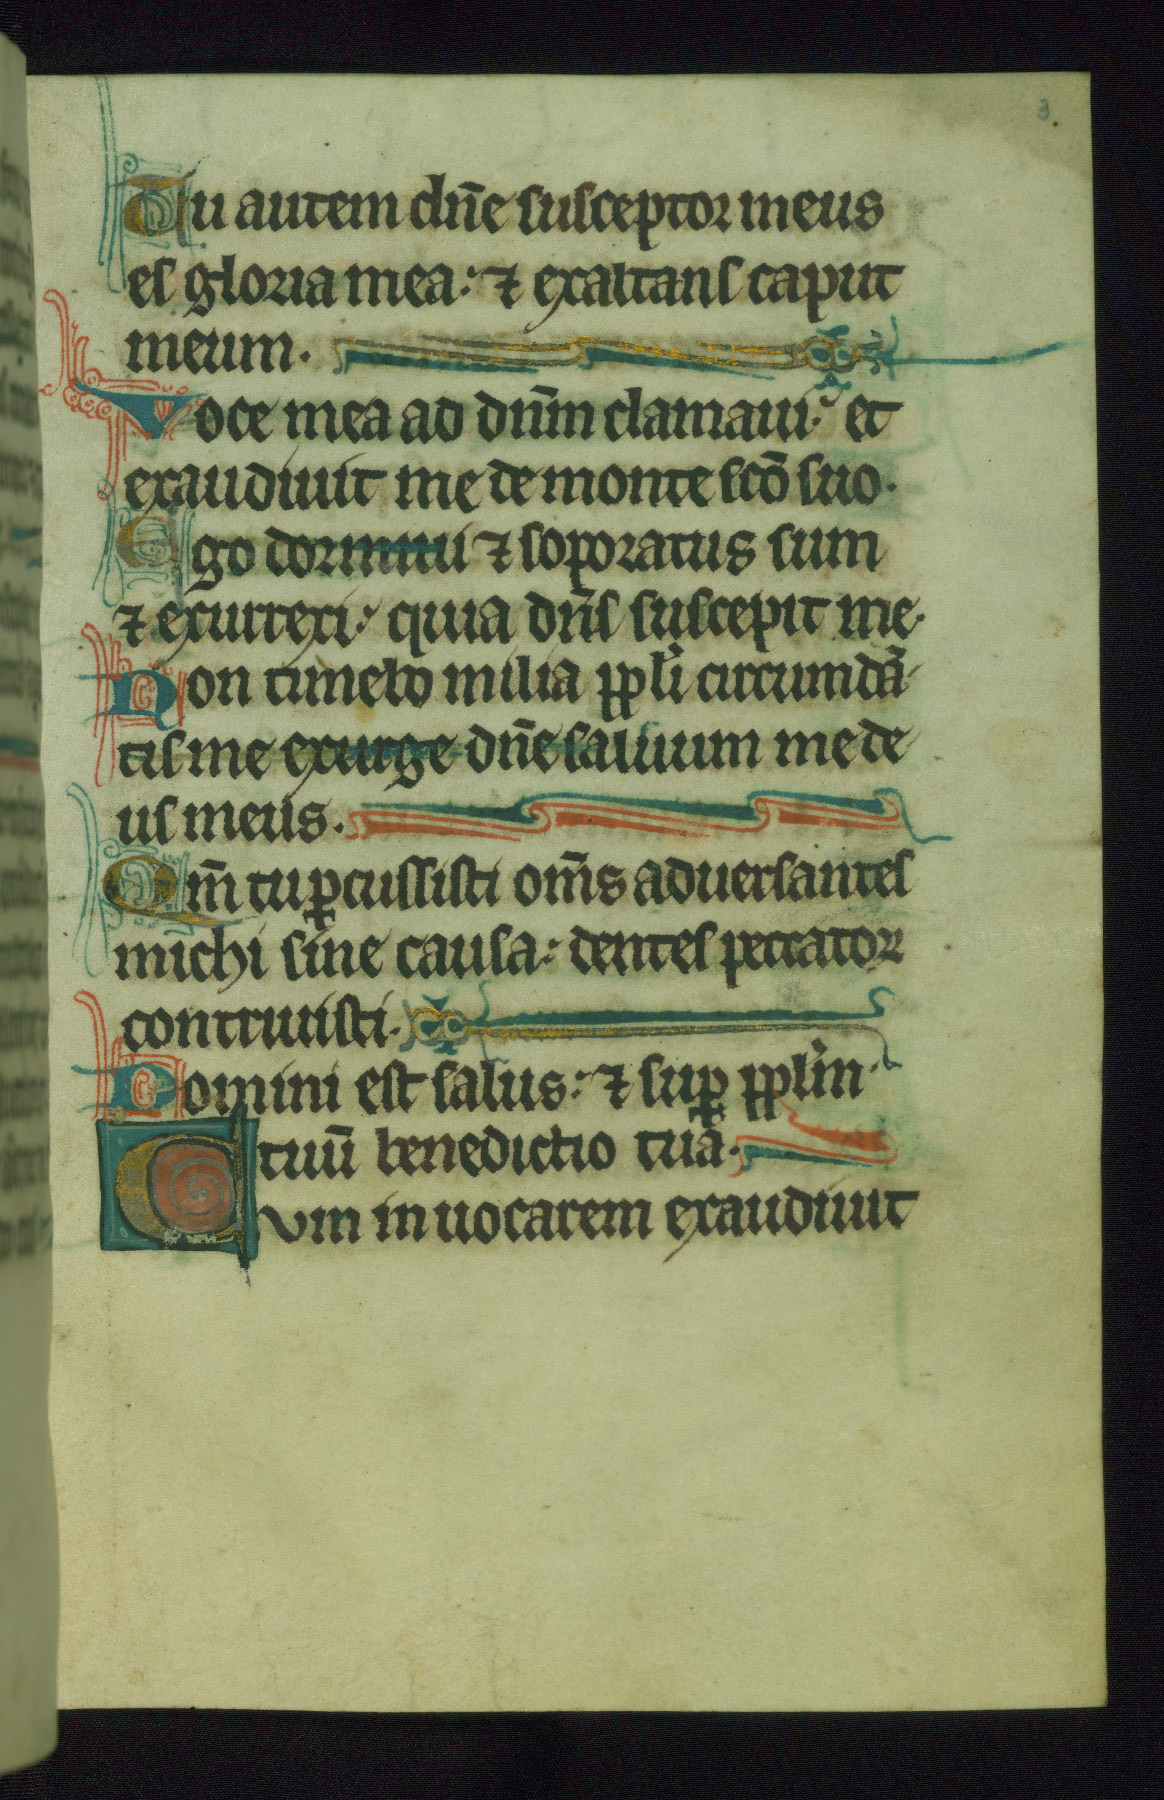 3.
Tu autem dn̄e susceptor meus
es gloria mea: ⁊ exaltans caput
meum.
Voce mea ad dn̄m clamaui: et
exaudiuit me de monte sc̄o suo.
Ego dormiui ⁊ soporatus sum
⁊ exurrexi: quia dn̄s suscepit me.
Non timebo milia ppl̓i circumda̓
tis me exurge dn̄e saluum me de
us meus.
Qm̄ tu ꝑcussisti om̄s aduersantes
michi sine causa: dentes peccator
contriuisti.
Domini est salus: ⁊ suꝑ ppl̓m
tuū benedictio tua.
Cvm inuocarem exaudiuit